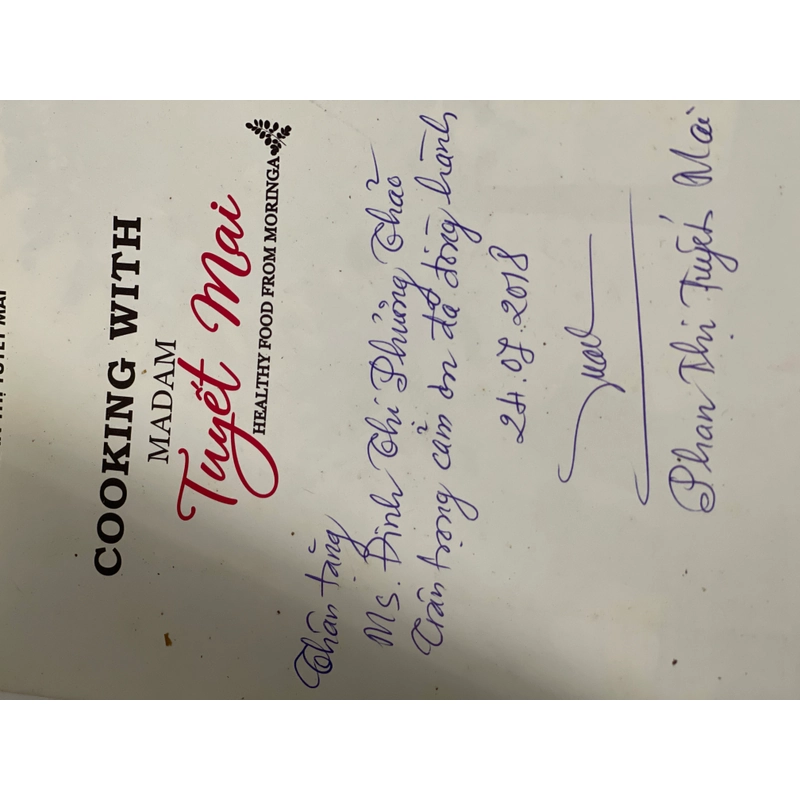 COOKING WITH
MADAM
Tuyết Mai
HEALTHY FOOD FROM MORINGA
Thân tặng
Ms. Đinh Thi Phương Thảo
Trân trọng cảm ơn đã đồng hành
24.07.2018
Phan Thị Tuyết Mai